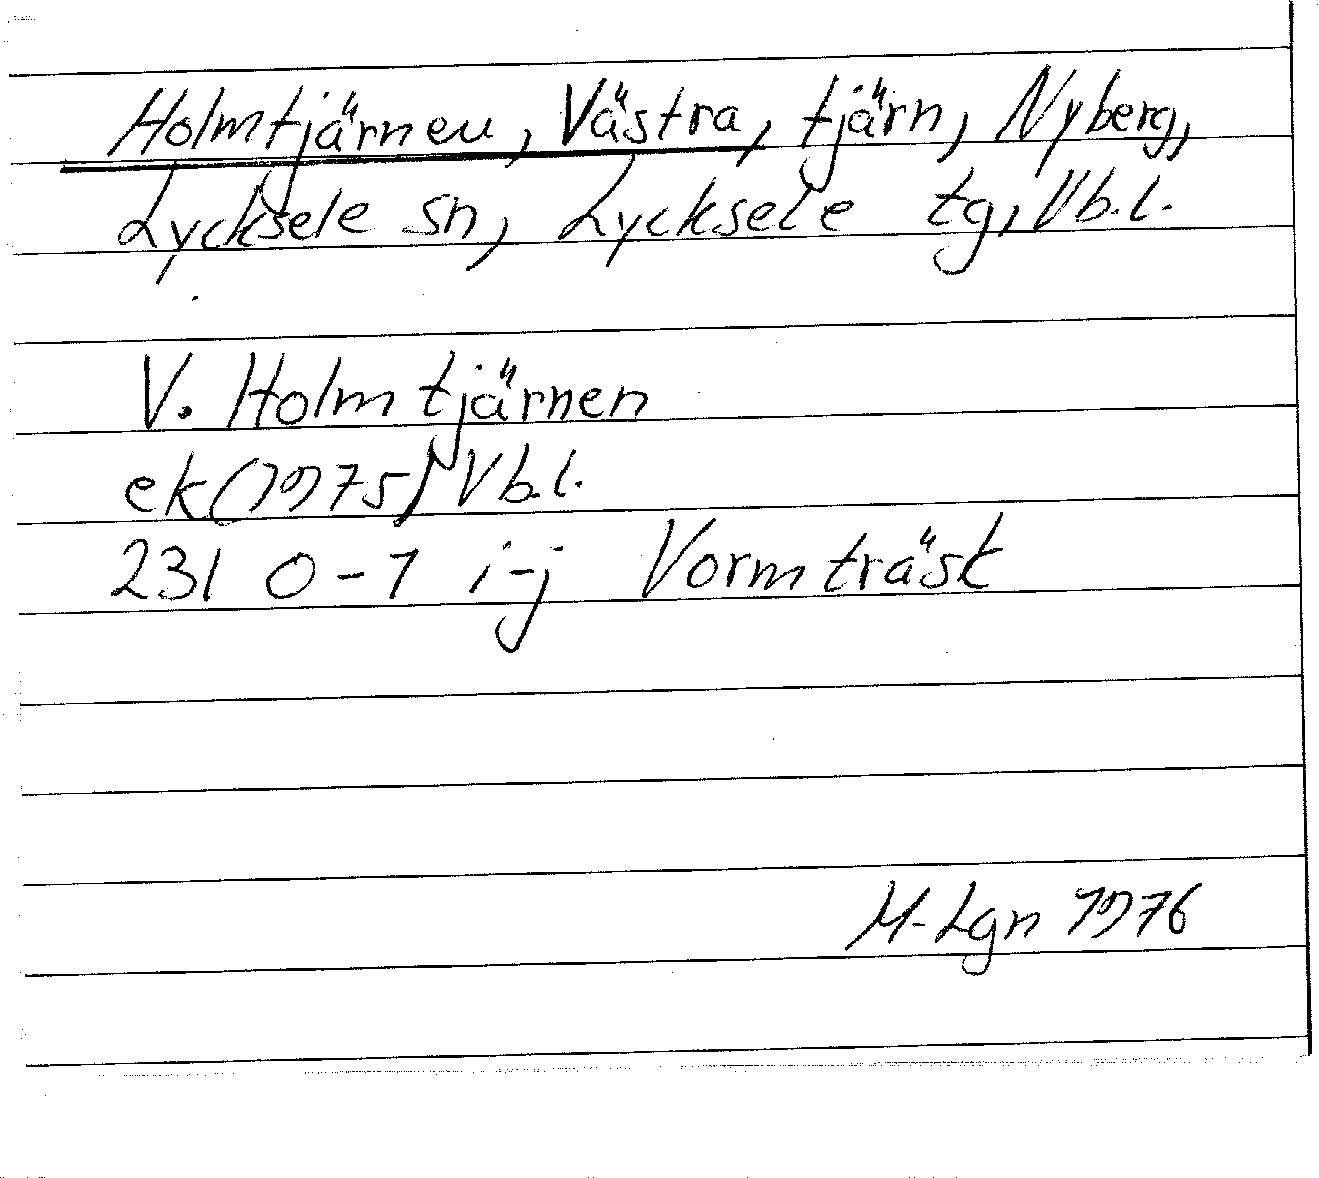 Holmtjärnen, Västra, tjärn, Nyberg,
Lycksele sn, Lycksele tg, Vb.l.
V. Holmtjärnen
ek(1975) Vb.l.
231 0-1 i-j Vormträsk
M-Lgn 1976